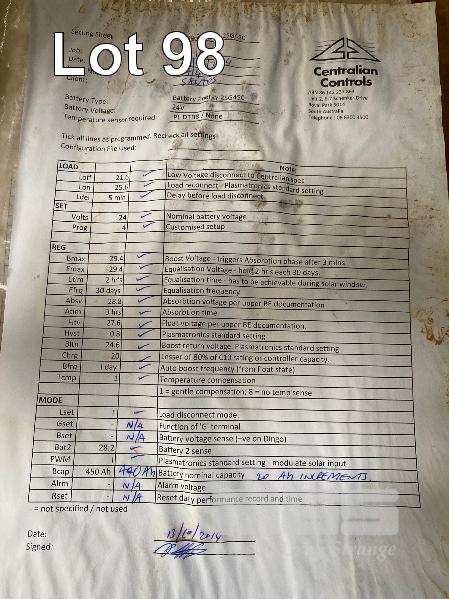 Lot 98
Setting Sheet
2SG450
Date:
Client: SANTOS
Centralian
Controls
Royal Park 5014
South Australia
Telephone: 08 8300 4500
Battery Type: Battery Energy 2SG450
Battery Voltage: 24V
Temperature sensor required: / None
Tick all lines as programmed. Recheck all settings
Configuration File used:
LOAD Note
Loff 21.6 ✓ Low Voltage disconnect to Centralian spec
Lon 25.6 ✓ Load reconnect - Plasmatronics standard setting
Ldel 5 min ✓ Delay before load disconnect
SET
Volts 24 ✓ Nominal battery voltage
Prog 4 ✓ Customised setup
REG
Bmax 29.4 ✓ Boost Voltage - triggers Absorption phase after 3 mins.
Emax 29.4 ✓ Equalisation Voltage - held 2 hrs each 30 days.
Etim 2 hrs ✓ Equalisation time - has to be achievable during solar window.
Efrq 30 days ✓ Equalisation frequency
Absv 28.8 ✓ Absorbtion voltage per upper BE documentation
Atim 3 hrs ✓ Absorbtion time
Fltv 27.6 ✓ Float voltage per upper BE documentation.
Hyst 0.8 ✓ Plasmatronics standard setting
Brtn 24.6 ✓ Boost return voltage. Plasmatronics standard setting
Chrg 20 ✓ Lesser of 80% of C10 rating or controller capacity.
Bfrq 1 day ✓ Auto boost frequency (from float state)
Tcmp 1 ✓ Temperature compensation
1 = gentle compensation; 8 = no temp sense
MODE
Lset 1 ✓ Load disconnect mode.
Gset - N/A Function of 'G' terminal
Bset - N/A Battery voltage sense (-ve on Dingo)
Bat2 28.2 ✓ Battery 2 sense
PWM ✓ Plasmatronics standard setting - modulate solar input
Bcap 450 Ah 440 Ah Battery nominal capacity 20 Ah INCREMENTS
Alrm - N/A Alarm voltage
Rset - N/A Reset daily performance record and time
- = not specified / not used
Date: 13/10/2014
Signed: